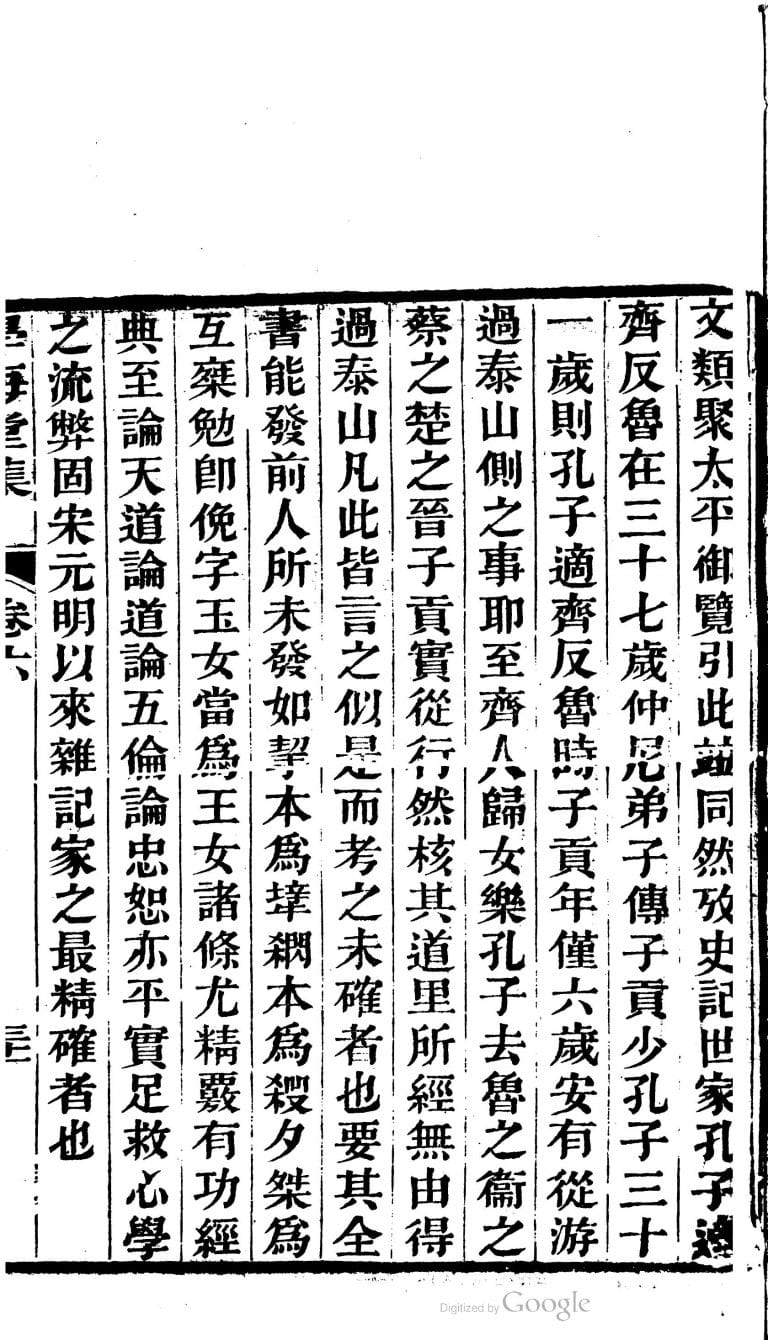 文類聚太平御覽引此竝同然攷史記世家孔子適
齊反魯在三十七歲仲尼弟子傳子貢少孔子三十
一歲則孔子適齊反魯時子貢年僅六歲安有從游
過泰山側之事耶至齊人歸女樂孔子去魯之衞之
蔡之楚之晉子貢實從行然核其道里所經無由得
過泰山凡此皆言之似是而考之未確者也要其全
書能發前人所未發如挈本爲㨖網本爲殺夕桀爲
互椉勉卽俛字玉女當爲王女諸條尤精覈有功經
典至論天道論道論五倫論忠恕亦平實足救心學
之流弊固宋元明以來雜記家之最精確者也
學海堂集 卷六
Digitized by Google